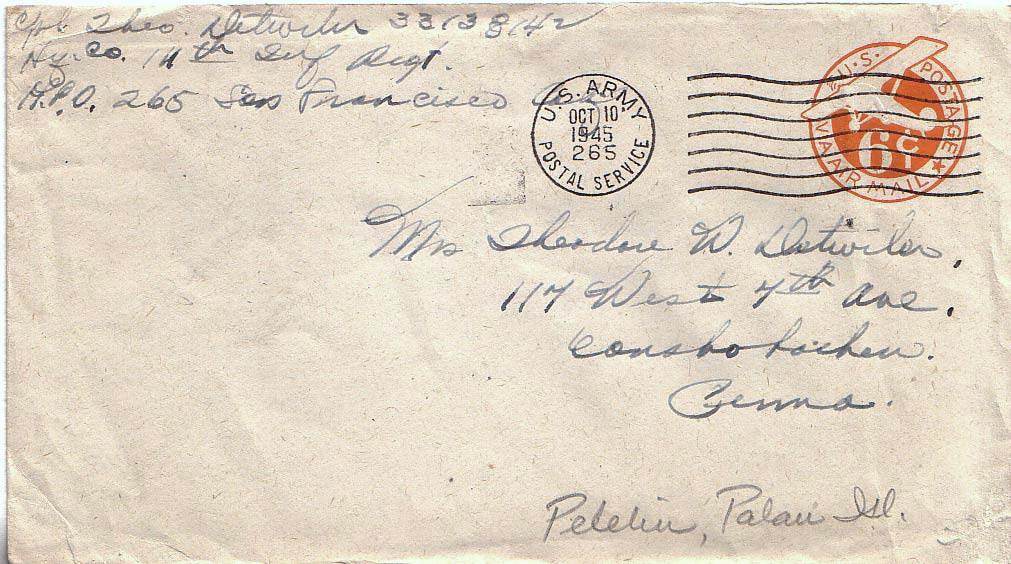 Cpl. Theo. Detwiler 33138142
Hq. Co. 111th Inf Regt.
A.P.O. 265 San Francisco Cal
U.S. ARMY
OCT 10
1945
265
POSTAL SERVICE
U.S. POSTAGE
6¢
VIA AIR MAIL
Mrs Theodore W. Detwiler,
117 West 7th Ave.
Conshohocken.
Penna.
Peleliu, Palau Isl.